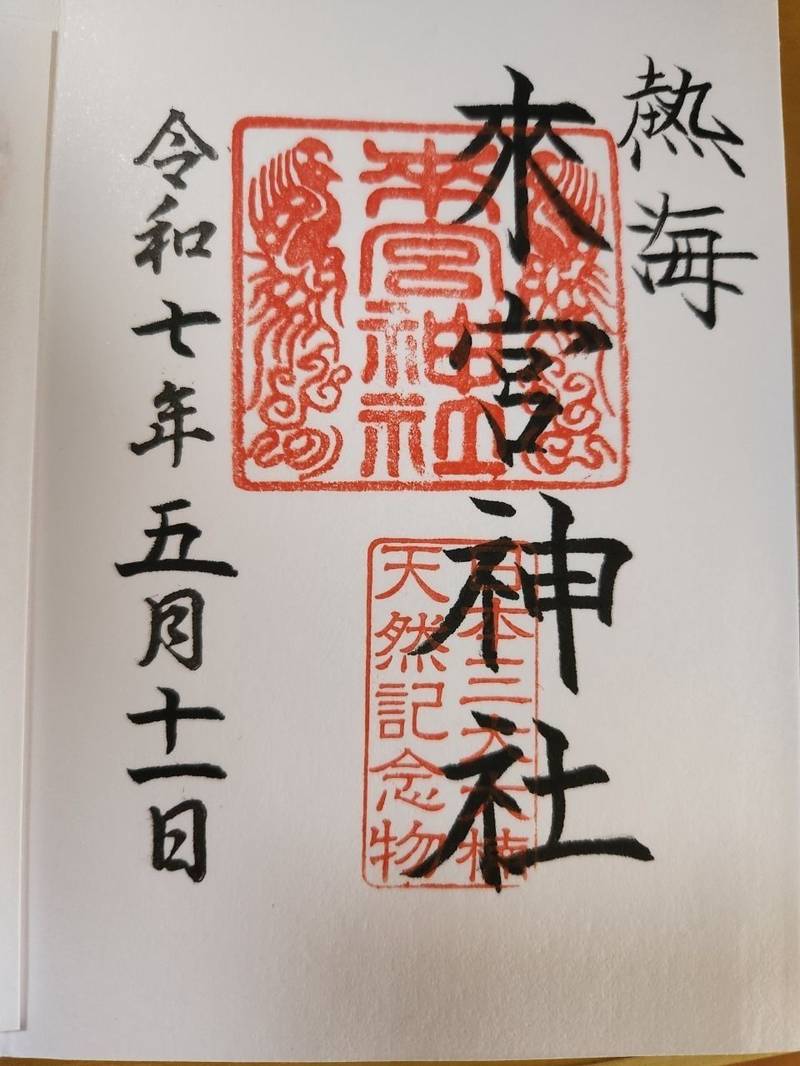 熱海
來宮神社
來宮神社
日本三大大楠
天然記念物
令和七年五月十一日